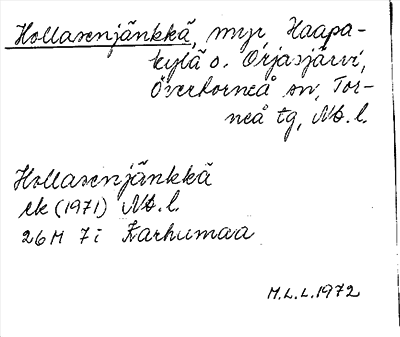 Hollasenjänkkä, myr, Haapa-
kylä o. Orjasjärvi,
Överkorneå sn, Tor-
neå tg, Nb. l.
Hollasenjänkkä
ek (1971) Nb. l.
26M 7i Karhumaa
M.L.L. 1972